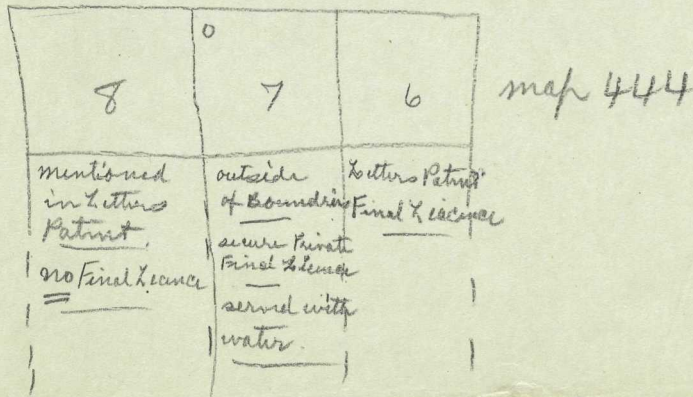 8
7
6
map 444
mentioned
in Letters
Patent.
no Final Licence
outside
of Boundries
secure Private
Final Licence
served with
water.
Letters Patent
Final Licence